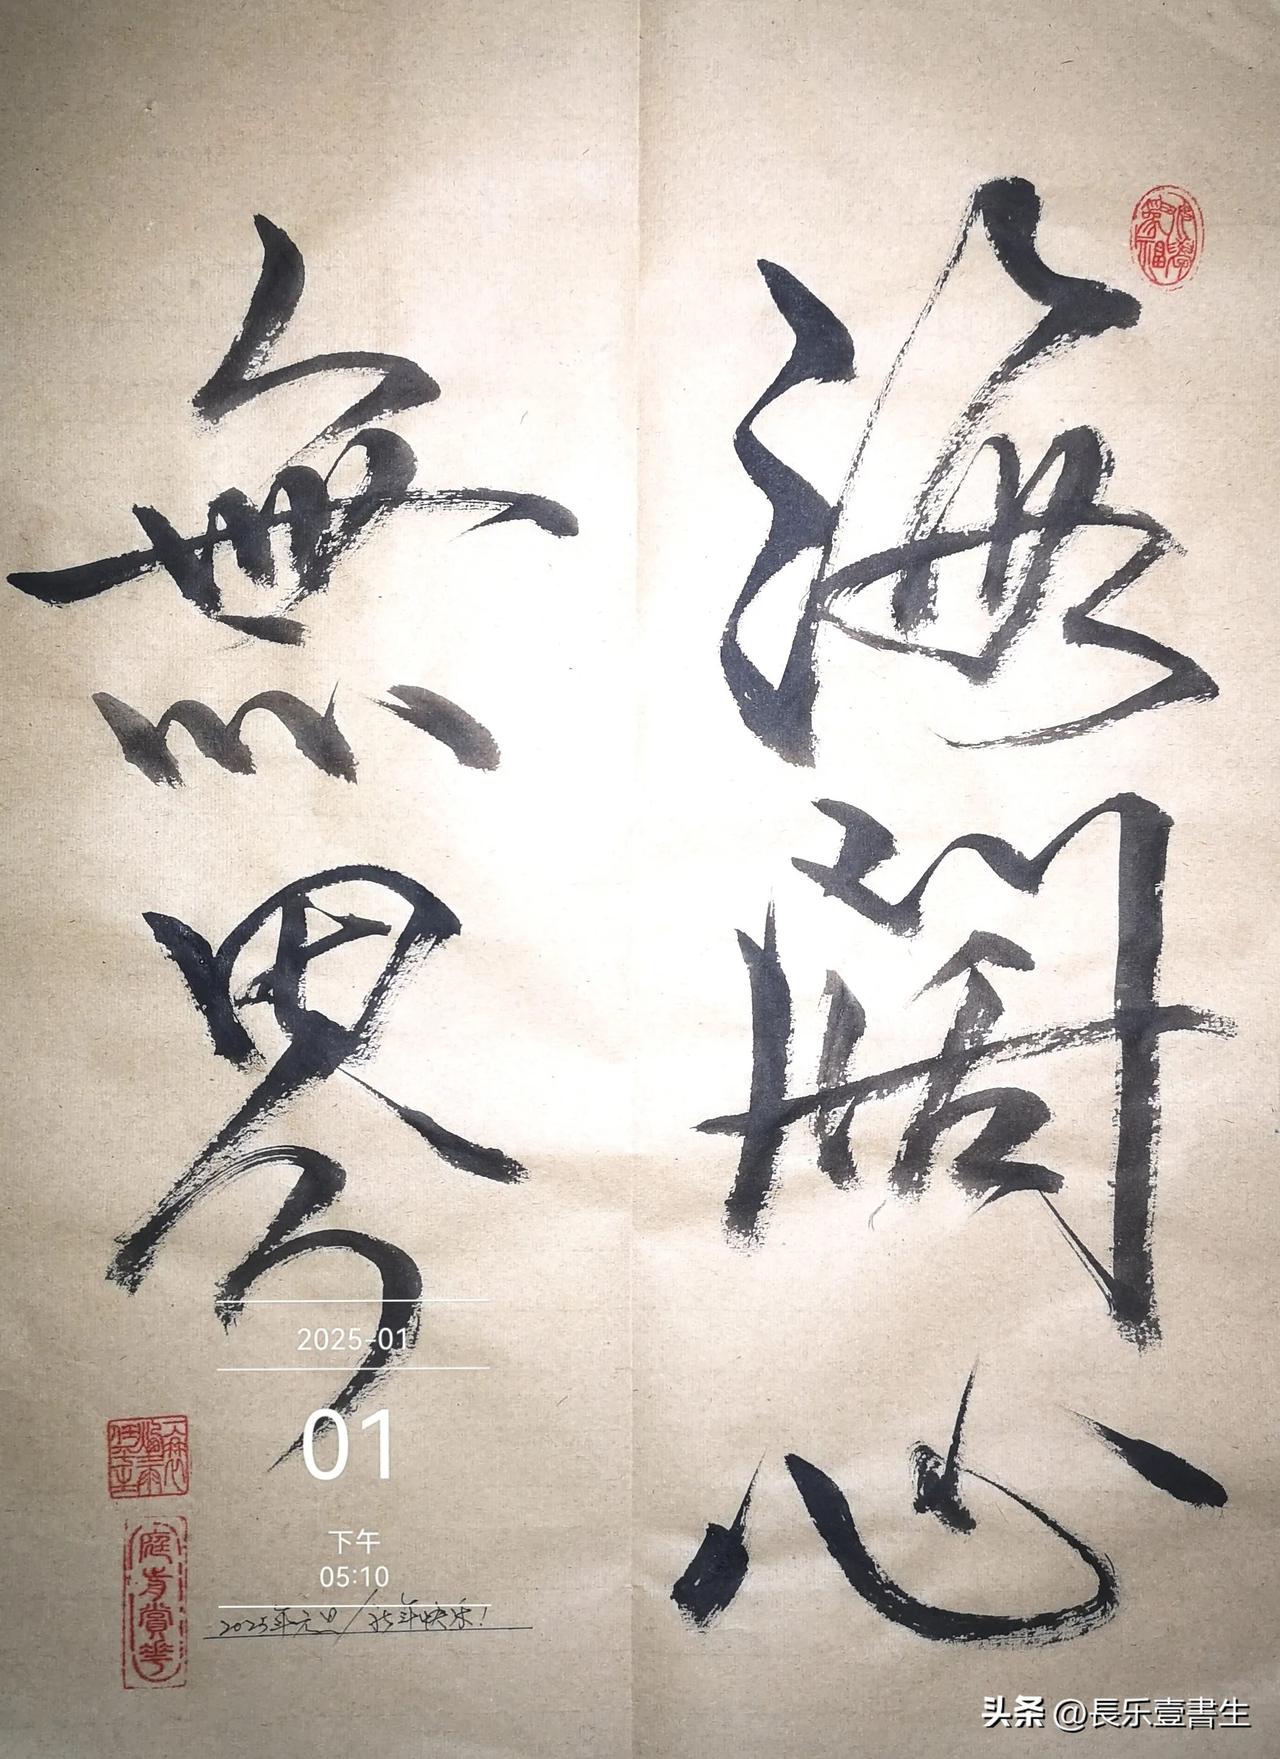 海闊心
無界
2025-01
01
下午
05:10
2025年元旦/新年快乐!
庭前賞花
头条 @長乐壹書生